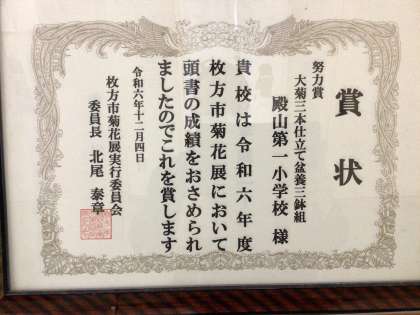 賞状
努力賞
大菊三本仕立て盆養三鉢組
殿山第一小学校 様
貴校は令和六年度
枚方市菊花展において
頭書の成績をおさめられ
ましたのでこれを賞します
令和六年十二月四日
枚方市菊花展実行委員会
委員長 北尾 泰章